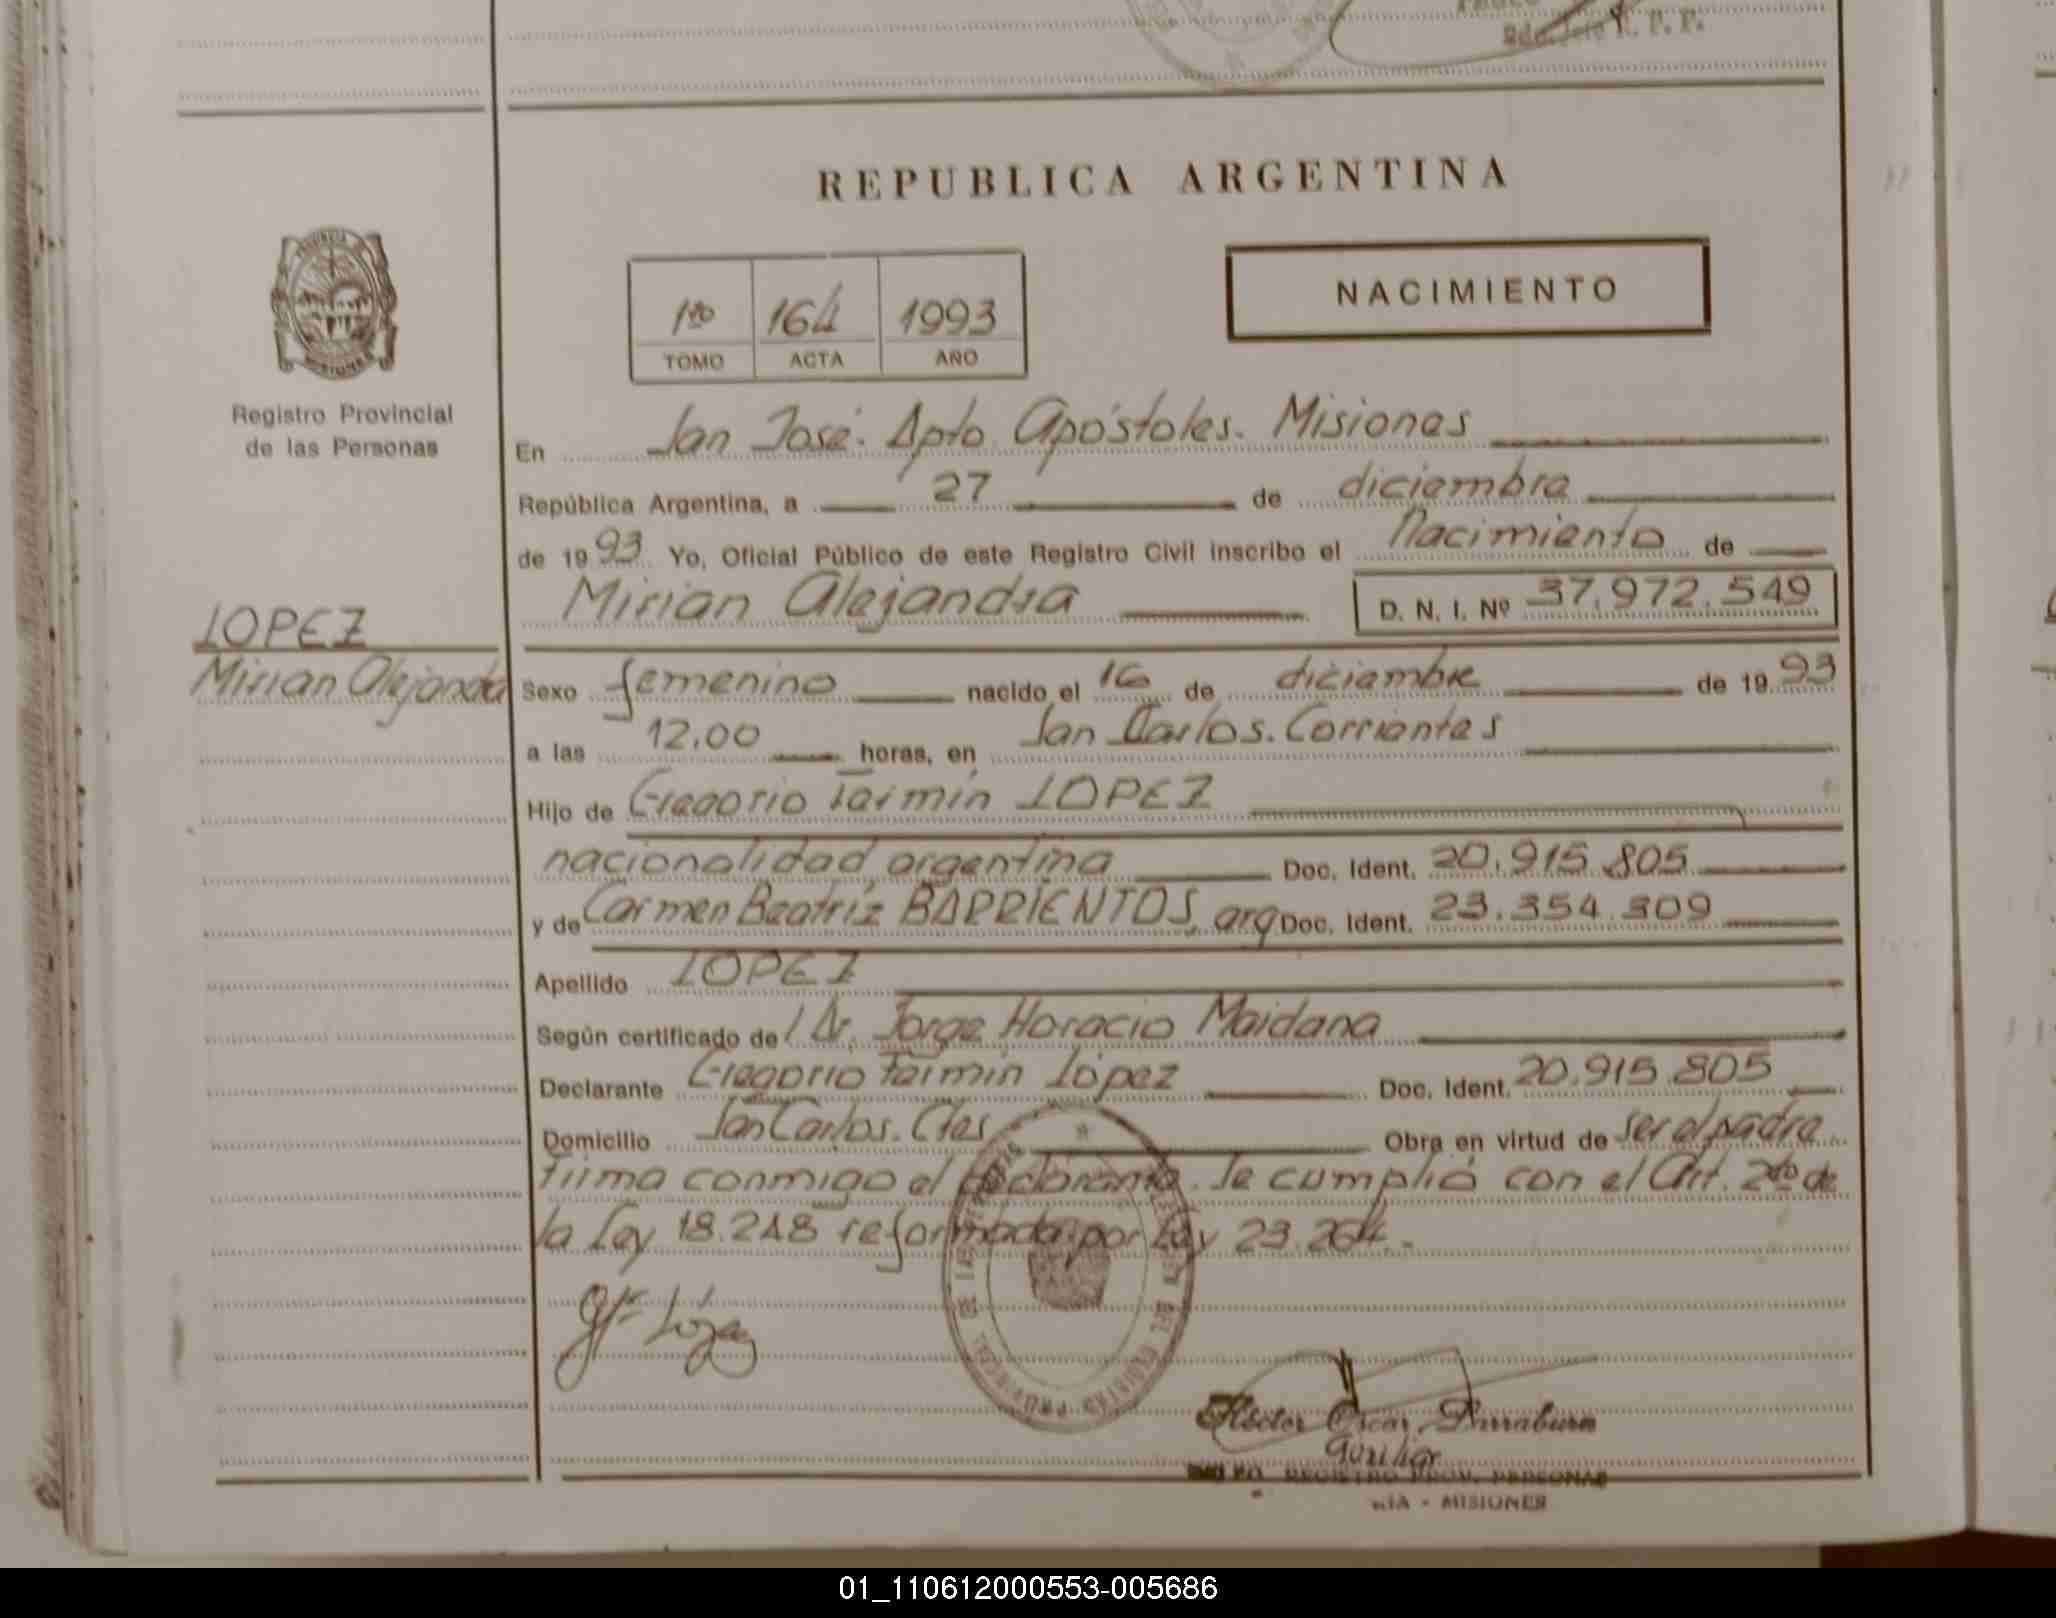 REPUBLICA ARGENTINA
NACIMIENTO
1ro 164 1993
TOMO ACTA AÑO
Registro Provincial
de las Personas
En San José. Dpto. Apóstoles. Misiones
República Argentina, a 27 de diciembre
de 1993 Yo, Oficial Público de este Registro Civil inscribo el Nacimiento de
Mirian Alejandra D. N. I. Nº 37.972.549
LOPEZ
Mirian Alejandra
Sexo femenino nacido el 16 de diciembre de 1993
a las 12.00 horas, en San Carlos. Corrientes
Hijo de Gregorio Fermín LOPEZ
nacionalidad argentina Doc. Ident. 20.915.805
y de Carmen Beatriz BARRIENTOS, arg Doc. Ident. 23.354.309
Apellido LOPEZ
Según certificado de Dr. Jorge Horacio Maidana
Declarante Gregorio Fermín López Doc. Ident. 20.915.805
Domicilio San Carlos. Ctes Obra en virtud de ser el padre
Firma conmigo el declarante. Se cumplió con el Art. 2do de
la Ley 18.248 reformada por Ley 23.264.-
López
Héctor Oscar
Auxiliar
REGISTRO PROV. PERSONAS
MISIONES
01_110612000553-005686